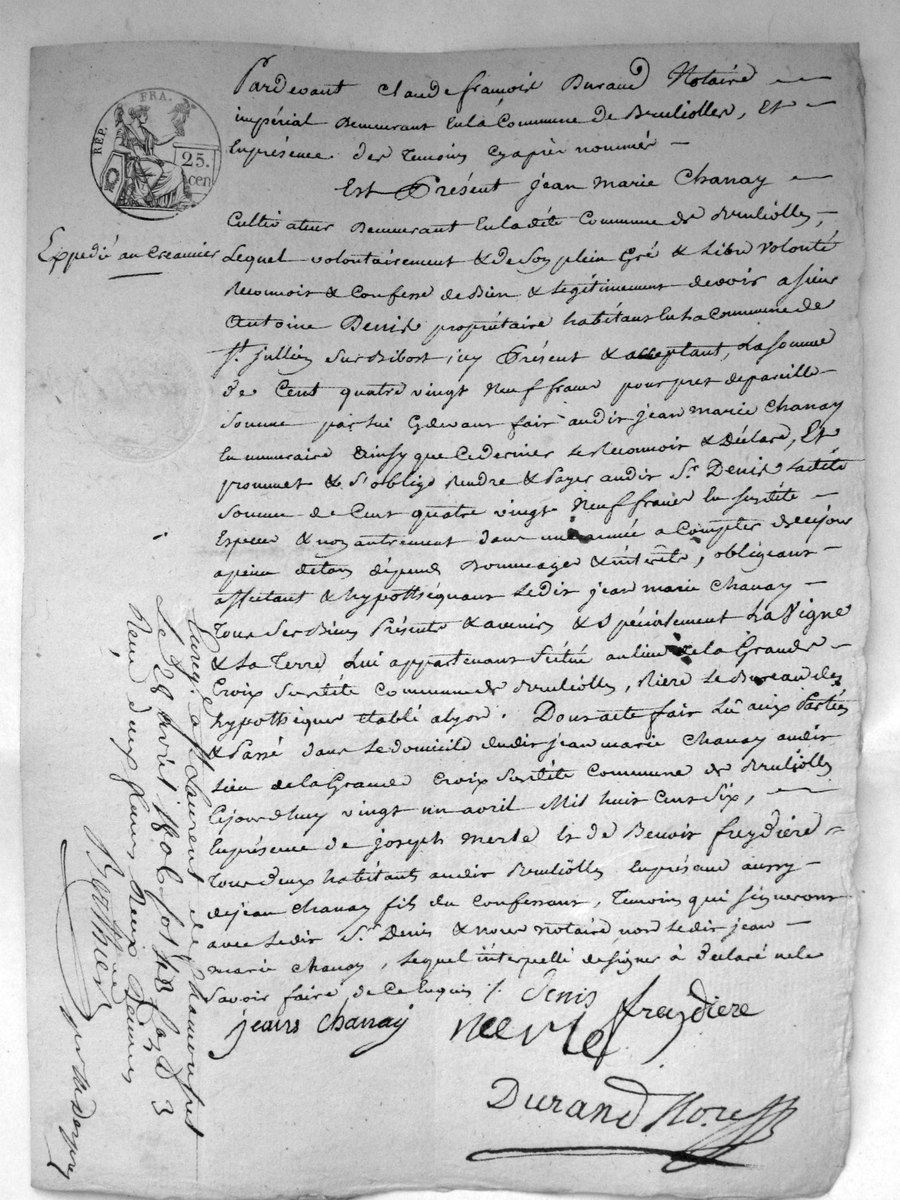 RÉP. FRA.
25.
cen
Expedié au Creancier
Pardevant Claude françois Durand Notaire
impérial Demeurant En la Commune de Brulliolles, Et
En présence des Temoins Cyaprès nommés
Est Présent jean marie Chanay
Cultivateur Demeurant En la dite Commune de Brulliolles,
Lequel volontairement & de son plein Gré & Libre volonté
Reconnoit & Confesse de Bien & Legitimement devoir a sieur
Antoine Denis propriétaire habitant En La Commune de
St. jullien Sur Bibost, icy Présent & acceptant, La somme
De Cent quatre vingt Neuf francs pour pret de pareille
Somme par lui Cydevant fait audit jean marie Chanay
En numeraire Ainsy que Ce dernier Le Reconnoit & Déclare, Et
promet & S'oblige Rendre & Payer audit Sr. Denis La dite
Somme de Cent quatre vingt Neuf francs En susdite
Espece & non autrement dans une année a Compter de ce jour
a peine de tous dépends Dommages & intérêts, obligeant
affectant & hypothéquant Ledit jean marie Chanay
Tous ses Biens Présents & avenirs & Spécialement La Vigne
& La Terre Lui appartenant Située au lieu de la Grande
Croix Susdite Commune de Brulliolles, Riere Le Bureau des
hypothéques établi a Lyon. Dont acte fait Lû aux Parties
& Passé dans Le domicile dudit jean marie Chanay audit
Lieu de la Grande Croix Susdite Commune de Brulliolles
Cejourd'huy vingt un avril Mil huit Cent Six,
En présence de joseph merle & de Benoit freydière
Tous deux habitants audit Brulliolles En présence aussy
de jean Chanay fils du Confessant, Temoins qui signeront
avec Ledit Sr. Denis & nous notaire non Ledit jean
marie Chanay, Lequel interpellé de signer à Declaré ne le
Savoir faire de Ce Enquis /. Denis
jeans chanay merle freydiere
Durand Nore
Enreg. a St. Laurent de Chamousset
Le 28 avril 1806 fos 48 Case 3
Reçu deux francs Deux Décimes